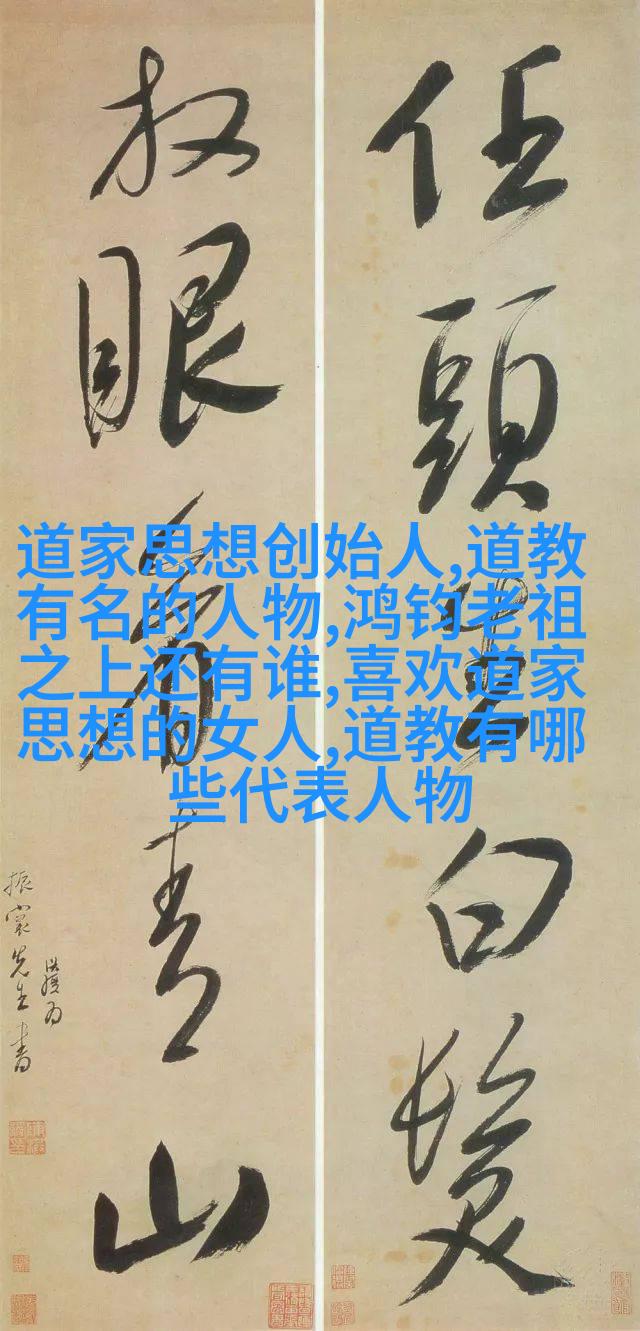 任頭白髮
放眼看青山
先生書
道家思想创始人,道教
有名的人物,鸿钧老祖
之上还有谁,喜欢道家
思想的女人,道教有哪
些代表人物